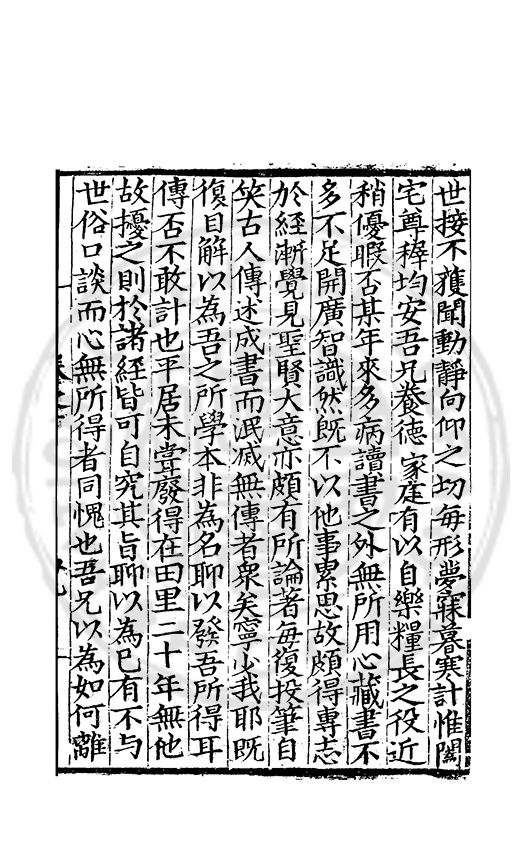 世接不獲聞動靜向仰之切每形夢寐暮寒計惟閤
宅尊稺均安吾兄養德家庭有以自樂糧長之役近
稍優暇否某年來多病讀書之外無所用心藏書不
多不足開廣智識然既不以他事累思故頗得專志
於經漸覺見聖賢大意亦頗有所論著每復投筆自
笑古人傳述成書而泯滅無傳者衆矣寧少我耶既
復自解以為吾之所學本非為名聊以發吾所得耳
傳否不敢計也平居未甞廢得在田里二十年無他
故擾之則於諸經皆可自究其旨聊以為已有不与
世俗口談而心無所得者同愧也吾兄以為如何離